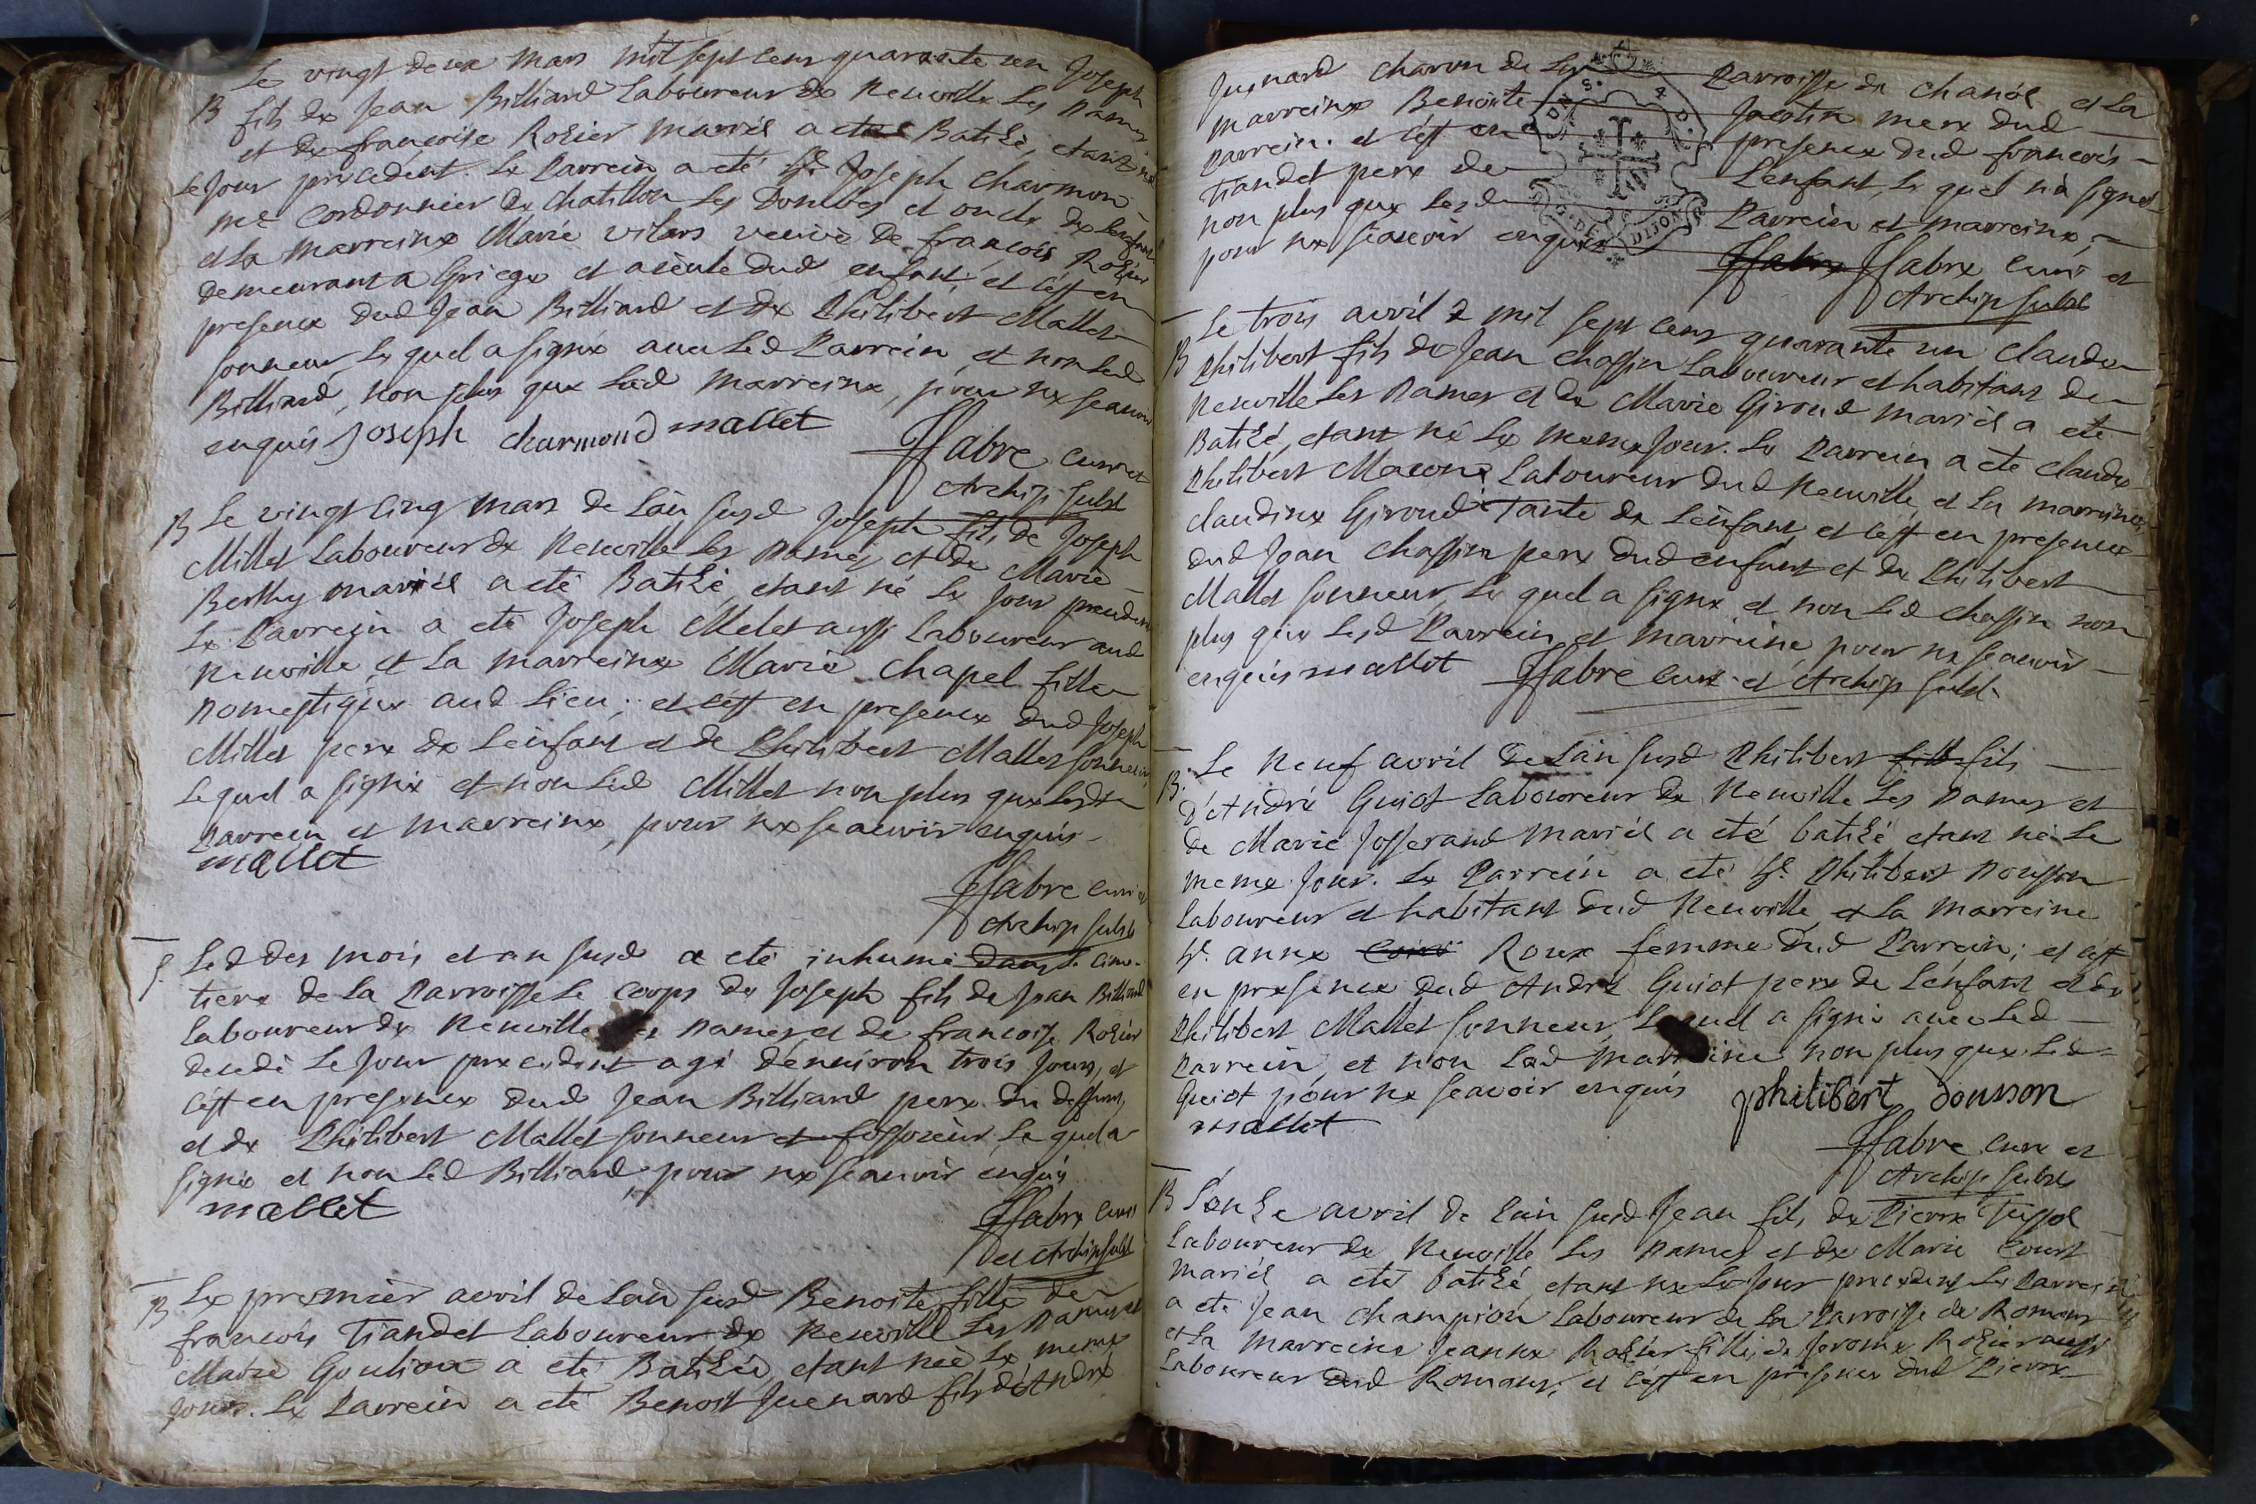 Le vingt deux mars mil sept cens quarante un Joseph
B fils de Jean Billiard Laboureur de Neuville Les Dames
et de françoise Rozier mariés a eté Batizé, etant né
le Jour précedent. Le Parrein a eté Sr. Joseph Charmon
me Cordonnier de Chatillon Les Dombes et oncle de Lenfant
et La marreine Marie vilars veuve de françois Rozier
demeurant a Griege et aieule dud enfant; et c'est en
presence dud Jean Billiard et de Philibert Mallet
sonneur, Le quel a signé avec Led Parrein et non led
Billiard, non plus que Lad marreine pour ne sçavoir
enquis Joseph charmond mallet
ffabre curé et
Archip subst
B Le vingt cinq mars de L'an susd Joseph fils de Joseph
Millet Laboureur de Neuville Les Dames et de Marie
Berthy mariés a eté Batizé, etant né Le Jour precedent
Le Parrein a eté Joseph Melet aussi Laboureur aud
Neuville, et La marreine Marie Chapel fille
Domestique aud Lieu; et c'est en presence dud Joseph
Millet pere de L'enfant et de Philibert Mallet sonneur,
Le quel a signé et non Led Millet non plus que Lesd
Parrein et marreine, pour ne sçavoir enquis
mallet
ffabre curé et
Archip subst
S. Led des mois et an susd a eté inhumé dans le cime-
tiere de La Parroisse le corps de Joseph fils de Jean Billiard
Laboureur de Neuville Les Dames et de francoise Rozier
decedé Le Jour precedent agé d'environ trois Jours, et
c'est en presence dud Jean Billiard pere du deffunt,
et de Philibert Mallet sonneur et fossoieur Le quel a
signé et non Led Billiard, pour ne sçavoir enquis
mallet
ffabre curé
et Archip subst
B Le premier avril de L'an susd Benoite fille de
françois Tiandet Laboureur de Neuville Les Dames et
Marie Goulioux a eté Batizée etant née Le meme
Jour. Le Parrein a eté Benoit Juenard fils d'Andre
Juenard charon de La Parroisse de Chanôs et La
marreine Benoite Jacotin mere dud
Parrein. et c'est en presence dud francois
Tiandet pere de L'enfant, Le quel n'a signé
non plus que Lesd Parrein et marreine,
pour ne sçavoir enquis
ffabre ffabre curé et
Archip subst
B Le trois avril mil sept cens quarante un Claude
Philibert fils de Jean Chassin Laboureur et habitant de
Neuville Les Dames et de Marie Giroud mariés a eté
Batizé, etant né Le meme Jour. Le Parrein a eté Claude
Philibert Macon Laboureur dud Neuville, et La marreine
Claudine Giroud Tante de L'enfant, et c'est en presence
dud Jean Chassin pere dud enfant et de Philibert
Mallet sonneur, Le quel a signé et non Led Chassin non
plus que Lesd Parrein et marreine pour ne sçavoir
enquis mallet ffabre curé et Archip subst
B. Le neuf avril de L'an susd Philibert fille fils
d'André Guiot Laboureur de Neuville Les Dames et
de Marie Josserand mariés a eté batizé etant né Le
meme Jour. Le Parrein a eté Sr. Philibert Dousson
Laboureur et habitant dud Neuville et La marreine
Sr. anne Roux femme dud Parrein; et c'est
en presence dud André Guiot pere de L'enfant et de
Philibert Mallet sonneur, Lequel a signé avec Led
Parrein, et non Lad marreine non plus que Led
Guiot pour ne sçavoir enquis philibert dousson
mallet
ffabre curé et
Archip subst
B L'onze avril de L'an susd Jean fils de Pierre
Laboureur de Neuville Les Dames et de Marie Court
mariés a eté batizé, etant né Le Jour precedent. Le Parrein
a eté Jean Champion Laboureur de La Parroisse de Romans
et La marreine Jeanne Rozier fille de Jerome Rozier aussi
Laboureur dud Romans; et c'est en presence dud Pierre